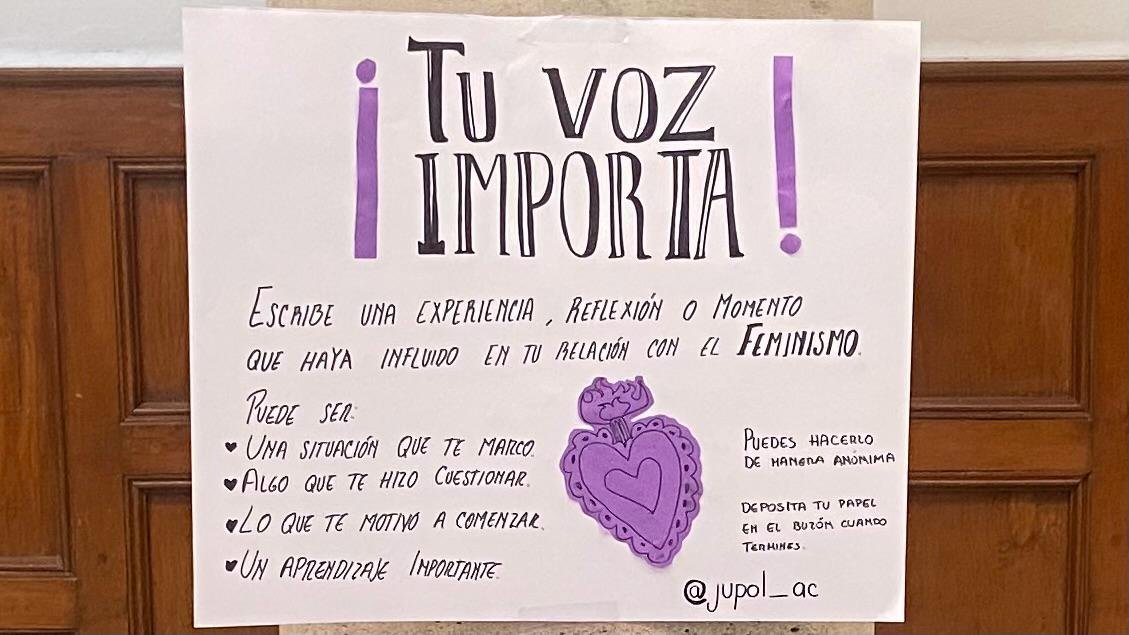 ¡TU VOZ
IMPORTA!
ESCRIBE UNA EXPERIENCIA, REFLEXIÓN O MOMENTO
QUE HAYA INFLUIDO EN TU RELACIÓN CON EL FEMINISMO.
PUEDE SER:
♥ UNA SITUACIÓN QUE TE MARCO.
♥ ALGO QUE TE HIZO CUESTIONAR.
♥ LO QUE TE MOTIVÓ A COMENZAR.
♥ UN APRENDIZAJE IMPORTANTE.
PUEDES HACERLO
DE MANERA ANÓNIMA
DEPOSITA TU PAPEL
EN EL BUZÓN CUANDO
TERMINES.
@jupol_ac